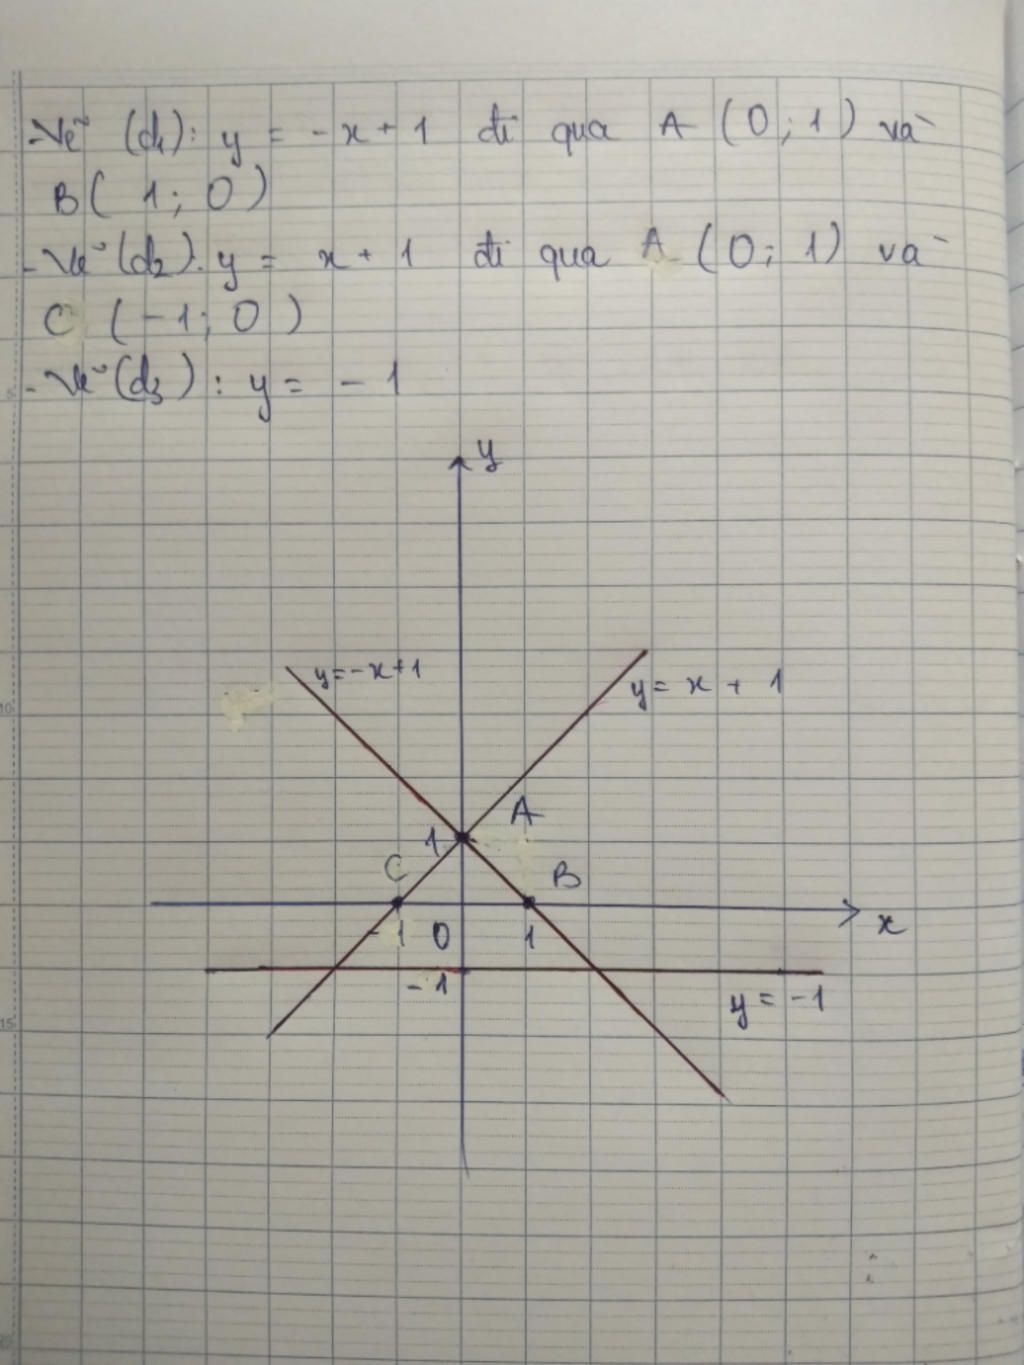 - Vẽ (d1): y = -x + 1 đi qua A (0; 1) và
B( 1; 0)
- Vẽ (d2): y = x + 1 đi qua A (0; 1) và
C (-1; 0)
- Vẽ (d3) : y = - 1
y
y=-x+1
y= x + 1
A
1
C
B
-1
0
1
x
-1
y = -1
5
10
15
20